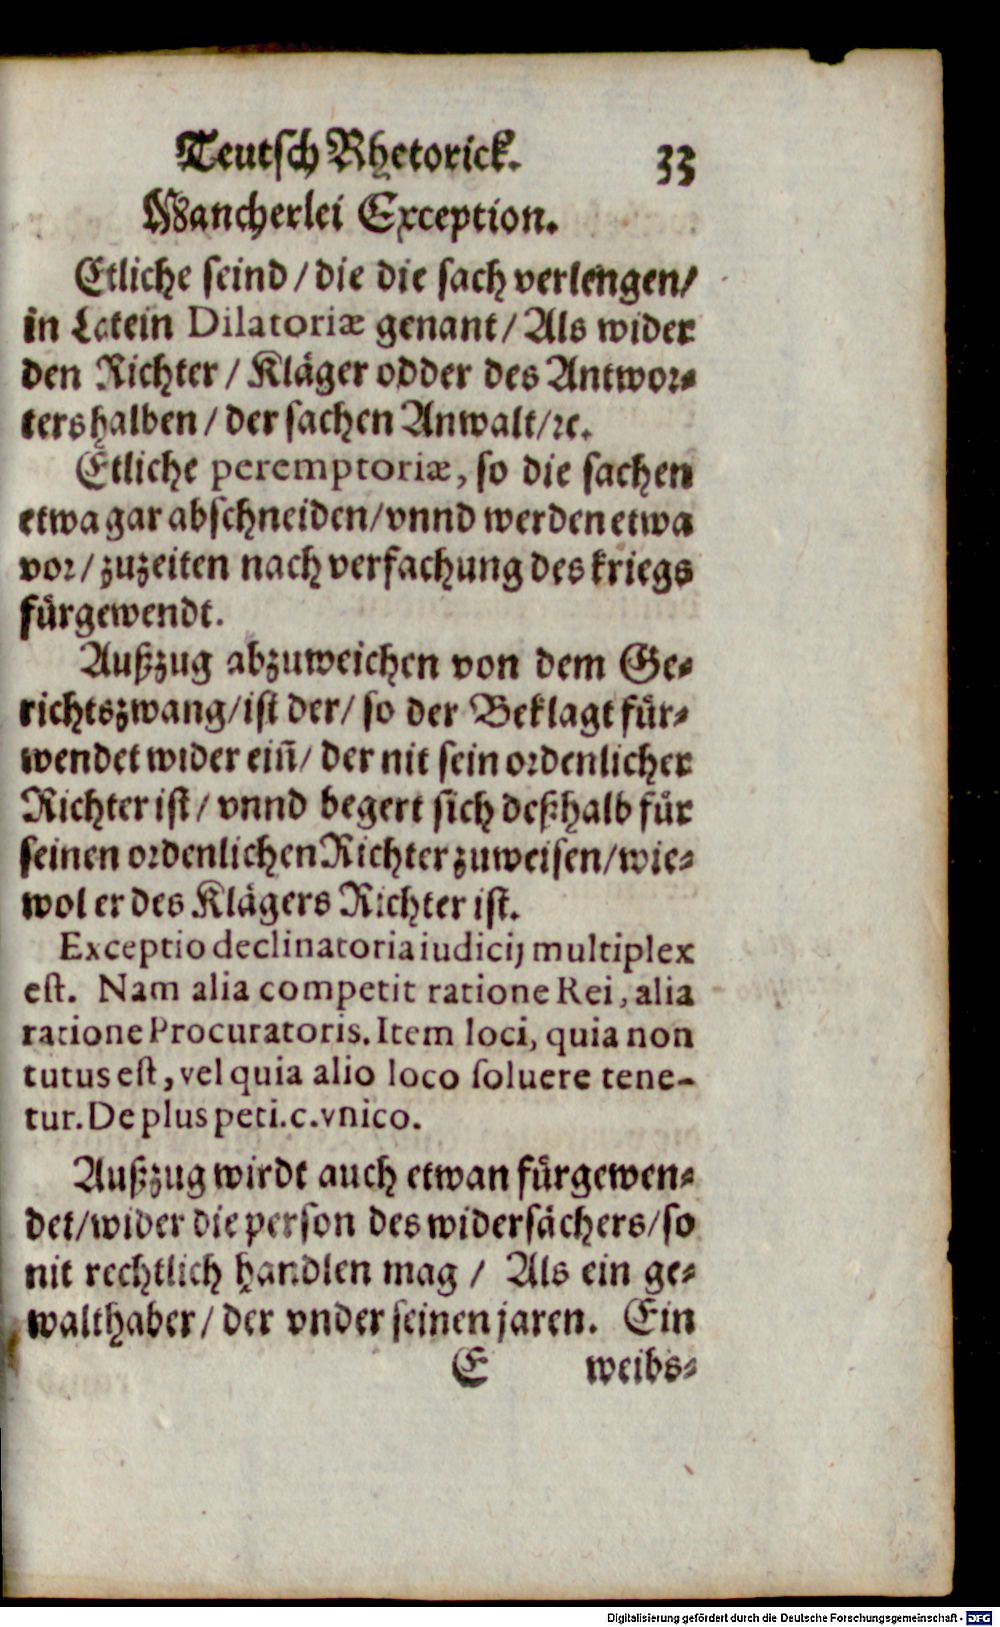 Teutsch Rhetorick. 33
Mancherlei Exception.
Etliche seind / die die sach verlengen /
in Latein Dilatoriæ genant / Als wider
den Richter / Kläger odder des Antwor⸗
ters halben / der sachen Anwalt / ꝛc.
Etliche peremptoriæ, so die sachen
etwa gar abschneiden / vnnd werden etwa
vor / zuzeiten nach verfachung des kriegs
fürgewendt.
Außzug abzuweichen von dem Ge⸗
richtszwang / ist der / so der Beklagt für⸗
wendet wider ein̄ / der nit sein ordenlicher
Richter ist / vnnd begert sich deßhalb für
seinen ordenlichen Richter zuweisen / wie⸗
wol er des Klägers Richter ist.
Exceptio declinatoria iudicij multiplex
est. Nam alia competit ratione Rei, alia
ratione Procuratoris. Item loci, quia non
tutus est, vel quia alio loco soluere tene-
tur. De plus peti. c. vnico.
Außzug wirdt auch etwan fürgewen⸗
det / wider die person des widersächers / so
nit rechtlich handlen mag / Als ein ge⸗
walthaber / der vnder seinen jaren. Ein
E weibs⸗
Digitalisierung gefördert durch die Deutsche Forschungsgemeinschaft - DFG